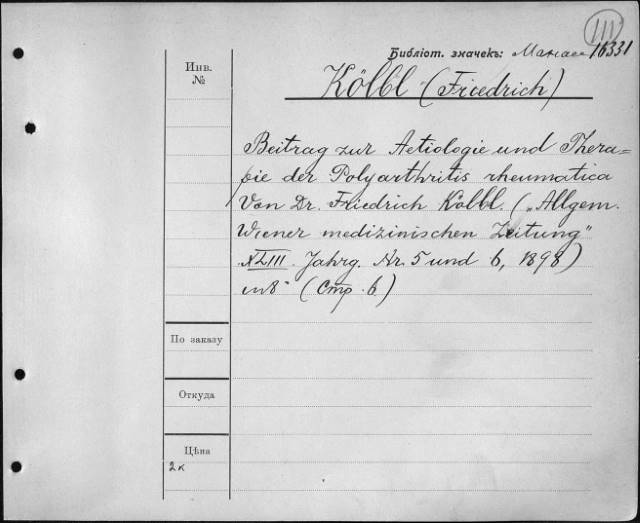 111
Библіот. значекъ: 16331
Инв.
№
Kölbl (Friedrich)
Beitrag zur Aetiologie und Thera=
pie der Polyarthritis rheumatica
Von Dr. Friedrich Kölbl. („Allgem.
Wiener medizinischen Zeitung"
XLIII. Jahrg. Nr. 5 und 6, 1898)
in 8° (Стр. 6)
По заказу
Откуда
Цѣна
2к